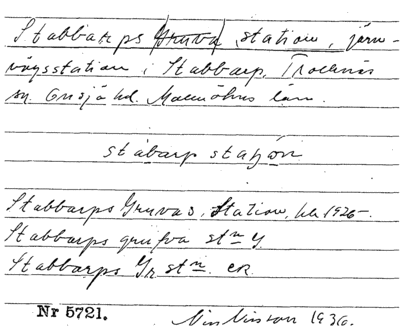 Stabbarps (Gruva) station, järn-
vägsstation i Stabbarp, Trollenäs
sn. Onsjö hd. Malmöhus län.
stabarp staʃon
Stabbarps Gruvas, Station, hla 1926-
Stabbarps grufva stn y
Stabbarps Gr. stn. ek.
Nr 5721.
1936.